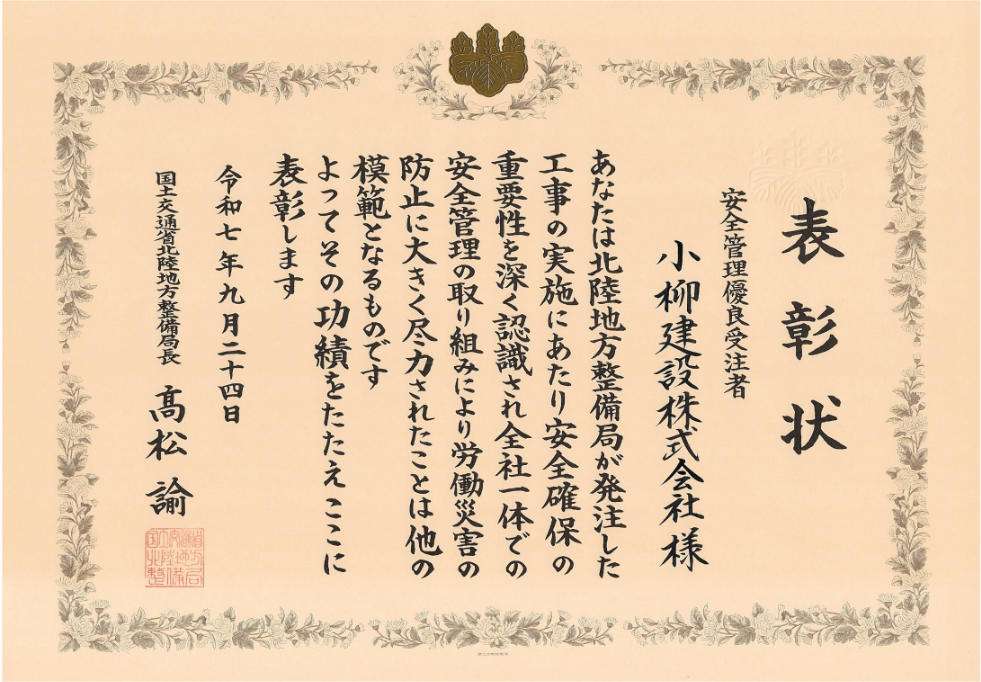 表彰状
安全管理優良受注者
小柳建設株式会社様
あなたは北陸地方整備局が発注した
工事の実施にあたり安全確保の
重要性を深く認識され全社一体での
安全管理の取り組みにより労働災害の
防止に大きく尽力されたことは他の
模範となるものです
よってその功績をたたえここに
表彰します
令和七年九月二十四日
国土交通省北陸地方整備局長
髙松諭